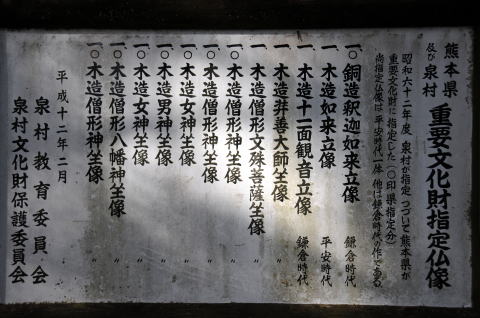 熊本県
及び泉村
重要文化財指定仏像
昭和六十二年度 泉村が指定 つづいて熊本県が
重要文化財に指定した(○印県指定分)
尚指定仏像は平安時代一体 他は鎌倉時代の作である
一、○銅造釈迦如来立像 鎌倉時代
一、木造如来立像 平安時代
一、木造十一面観音立像 鎌倉時代
一、木造非善大師坐像 〃
一、木造僧形文殊菩薩坐像 〃
一、○木造僧形神坐像 〃
一、○木造僧形神坐像 〃
一、○木造女神坐像 〃
一、○木造男神坐像 〃
一、○木造女神坐像 〃
一、○木造僧形八幡神坐像 〃
一、○木造僧形神坐像 〃
平成十二年二月
泉村教育委員会
泉村文化財保護委員会